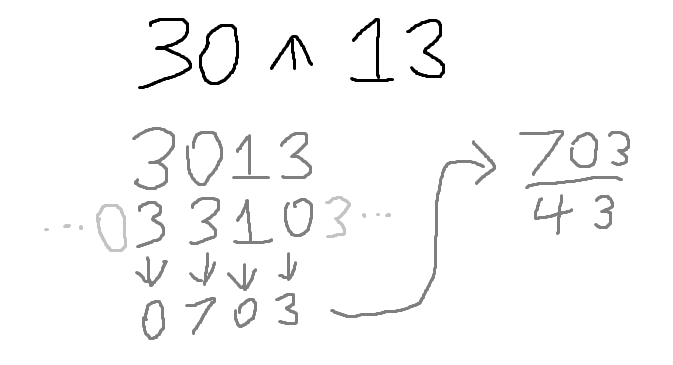 30 ^ 13
3013
...033103...
0703
703
43